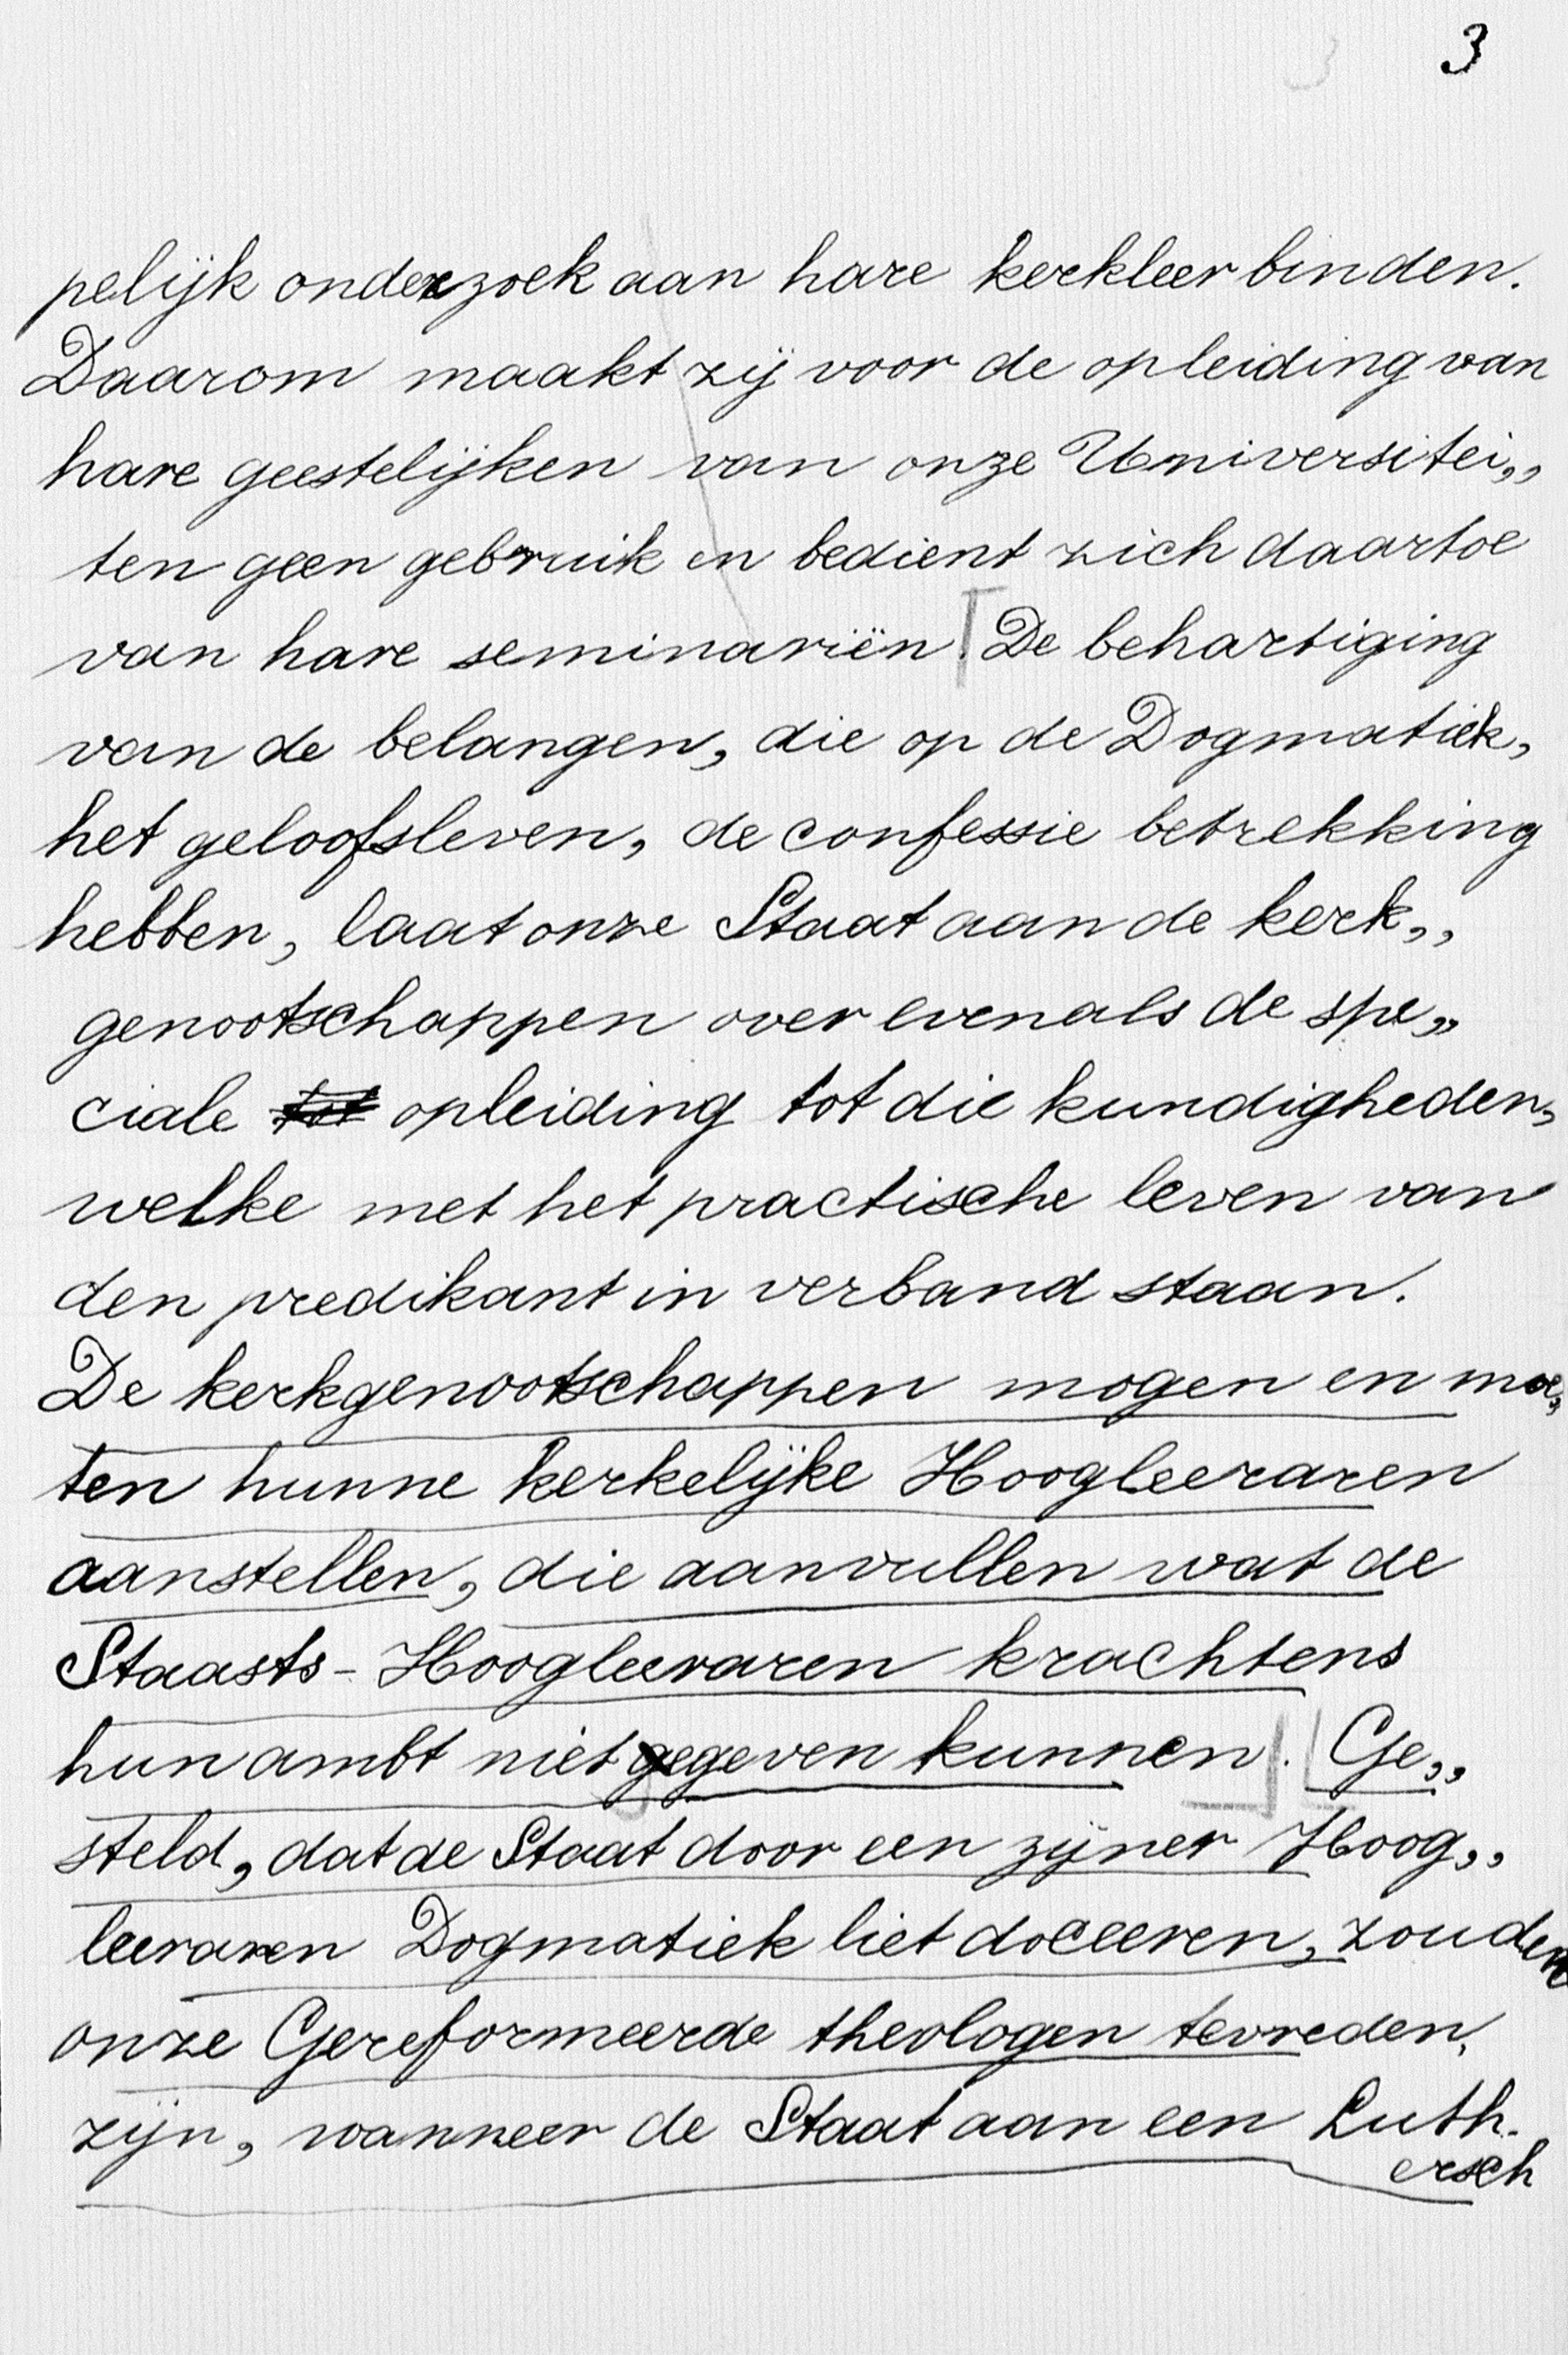 3
pelijk onderzoek aan hare kerkleer binden.
Daarom maakt zij voor de opleiding van
hare geestelijken van onze Universitei„
ten geen gebruik en bedient zich daartoe
van hare seminariën. De behartiging
van de belangen, die op de Dogmatiek,
het geloofsleven, de confessie betrekking
hebben, laat onze Staat aan de kerk„
genootschappen over evenals de spe„
ciale tot opleiding tot die kundigheden,
welke met het practische leven van
den predikant in verband staan.
De kerkgenootschappen mogen en moe„
ten hunne kerkelijke Hoogleeraren
aanstellen, die aanvullen wat de
Staasts-Hoogleeraren krachtens
hun ambt niet gegeven kunnen. Ge„
steld, dat de Staat door een zijner Hoog„
leeraren Dogmatiek liet doceeren, zouden
onze Gereformeerde theologen tevreden,
zijn, wanneer de Staat aan een Luth.
ersch